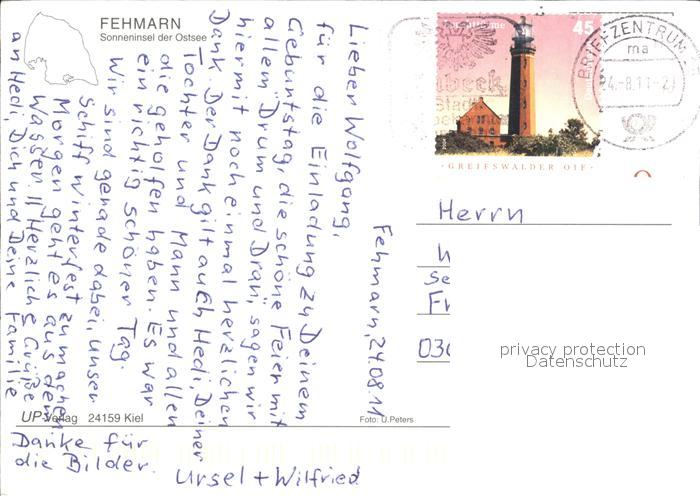 FEHMARN
Sonneninsel der Ostsee
Fehmarn, 24.08.11
Lieber Wolfgang,
für die Einladung zu Deinem
Geburtstag, die schöne Feier mit
allem "Drum und Dran", sagen wir
hiermit noch einmal herzlichen
Dank. Der Dank gilt auch Hedi, Deiner
Tochter und Mann und allen
die geholfen haben. Es war
ein richtig schöner Tag.
Wir sind gerade dabei, unser
Schiff winterfest zu machen
Morgen geht es aus dem
Wasser!! Herzliche Grüße
an Hedi, Dich und Deine Familie
Ursel + Wilfried
Danke für
die Bilder.
UP-Verlag 24159 Kiel
Foto: U.Peters
45
GREIFSWALDER OIE
BRIEFZENTRUM
ma
24.-8.11-21
Herrn
W
Se
Fr
030
privacy protection
Datenschutz